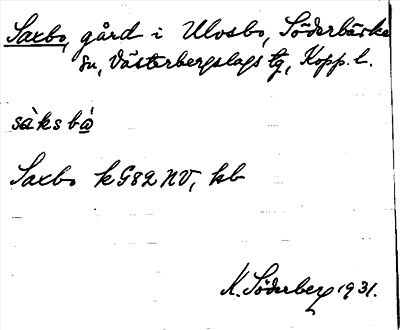 Saxbo, gård i Ulvsbo, Söderbärke
sn, Västerbergslags tg, Kopp. l.
sàksbo̱
Saxbo kG82NV, hb
K. Söderberg 1931.